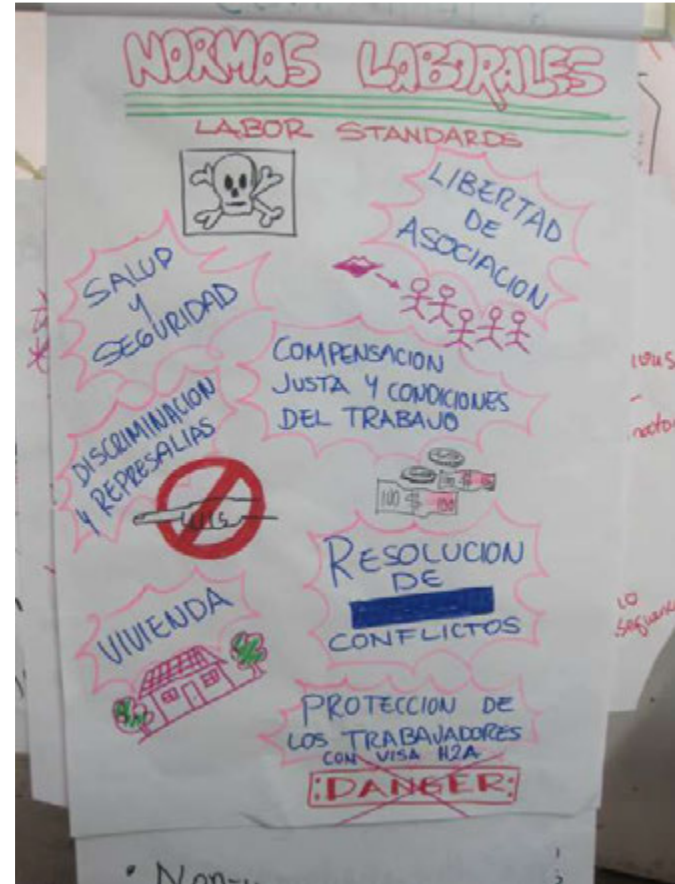 NORMAS LABORALES
LABOR STANDARDS
LIBERTAD
DE
ASOCIACION
SALUD
Y
SEGURIDAD
COMPENSACION
JUSTA Y CONDICIONES
DEL TRABAJO
DISCRIMINACION
Y REPRESALIAS
100 $ 100
RESOLUCION
DE
CONFLICTOS
VIVIENDA
PROTECCION DE
LOS TRABAJADORES
CON VISA H2A
DANGER